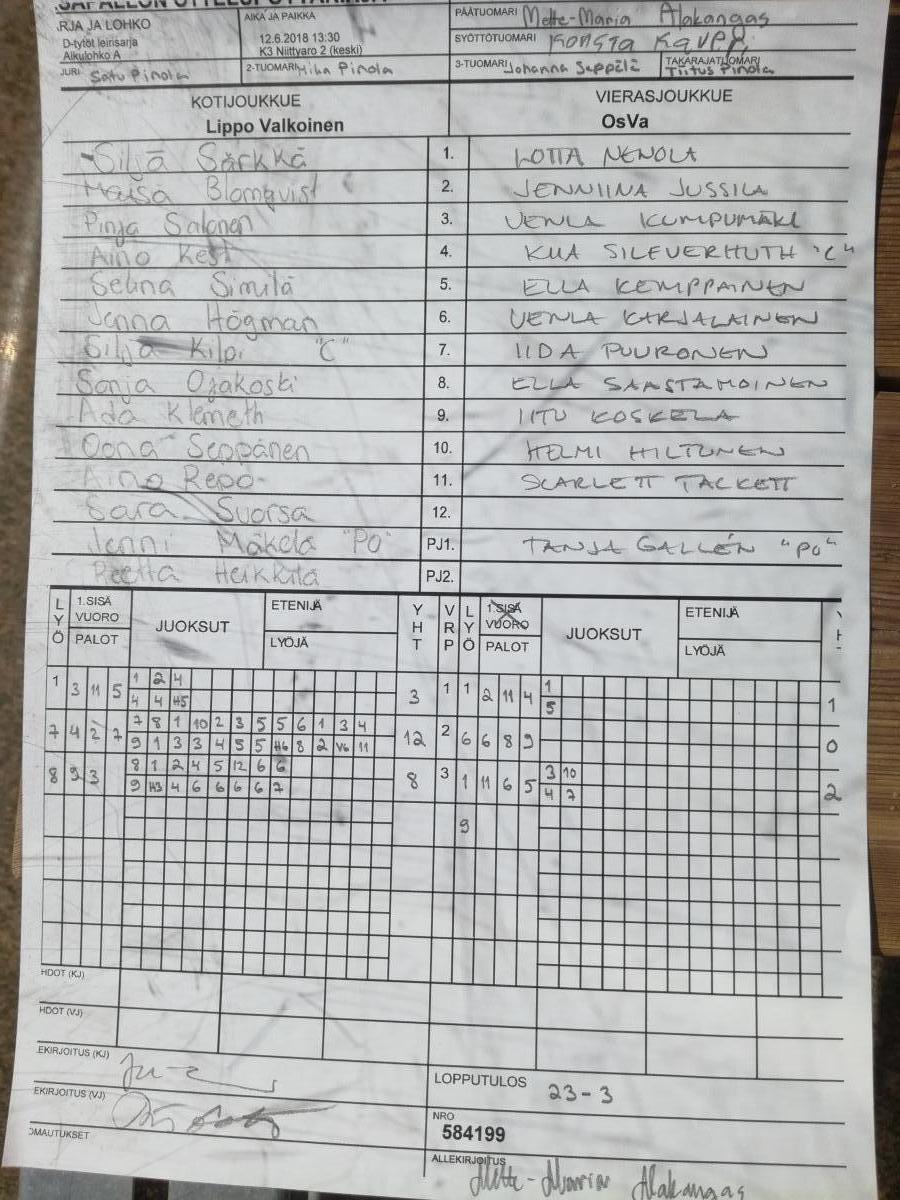 SAPALLON OTTELUPÖYTÄKIRJA
RJA JA LOHKO
D-tytöt leirisarja
Alkulohko A
AIKA JA PAIKKA
12.6.2018 13:30
K3 Niittyaro 2 (keski)
PÄÄTUOMARI Mette-Maria Alakangas
SYÖTTÖTUOMARI
JURI Satu Pinola
2-TUOMARI Mika Pinola
3-TUOMARI Johanna Seppälä
TAKARAJATUOMARI Tiitus Pinola
KOTIJOUKKUE VIERASJOUKKUE
Lippo Valkoinen OsVa
Silja Särkkä 1. LOTTA NENOLA
Maisa Blomqvist 2. JENNIINA JUSSILA
Pinja Salonen 3. VENLA KUMPUMÄKI
Aino Kesti 4. SILEVERHUTH "C"
Selina Similä 5. ELLA KEMPPAINEN
Jenna Högman 6. VENLA KARJALAINEN
Silja Kilpi "C" 7. IIDA PUURONEN
Sonja Ojakoski 8. ELLA SAASTAMOINEN
Ada Klemeth 9. IITU KOSKELA
Oona Seppänen 10. HELMI HILTUNEN
Aino Repo 11. SCARLETT TACKETT
Sara Suorsa 12.
Jenni Mäkelä "PO" PJ1. TANJA GALLÉN "PO"
Reetta Heikkilä PJ2.
LYÖ 1.SISÄ VUORO PALOT JUOKSUT ETENIJÄ LYÖJÄ YHT VRP LYÖ 1.SISÄ VUORO PALOT JUOKSUT ETENIJÄ LYÖJÄ
1 3 11 5 1 2 4 3 1 1 2 11 4 1 1
4 4 H5 5
7 4 2 7 7 8 1 10 2 3 5 5 6 1 3 4 12 2 6 6 8 9 0
9 1 3 3 4 5 5 H6 8 2 V6 11
8 9 3 8 1 2 4 5 12 6 6 8 3 1 11 6 5 3 10 2
9 H3 4 6 6 6 6 7 4 7
9
HDOT (KJ)
HDOT (VJ)
EKIRJOITUS (KJ)
LOPPUTULOS 23-3
EKIRJOITUS (VJ)
NRO
584199
OMAUTUKSET
ALLEKIRJOITUS
Mette-Maria Alakangas